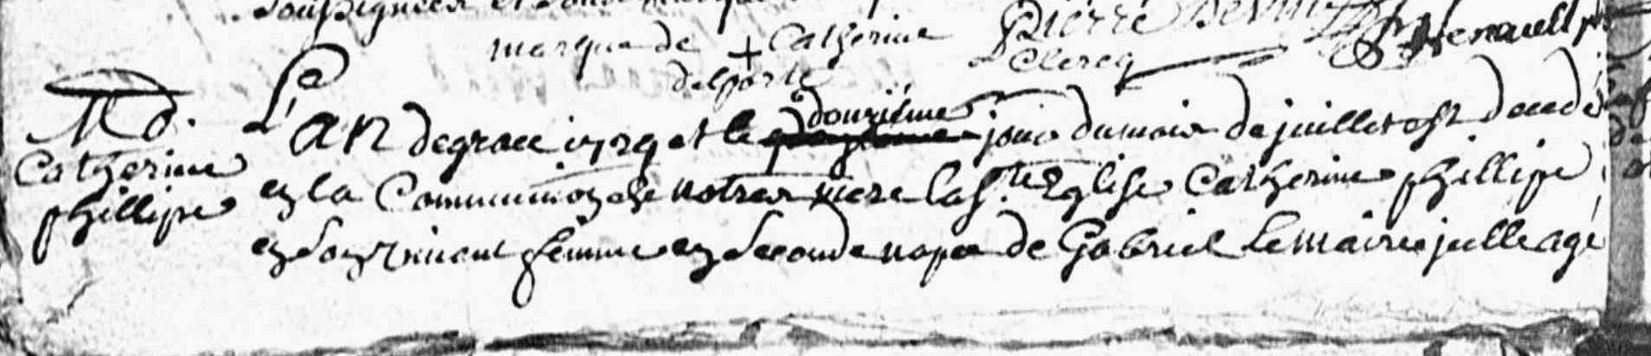 soussignées et
marque de + Catherine Pierre
delporte Clercq Henault
Md. L'an de grace 1729 et le douzième jour du mois de juillet est decedé
Catherine en la Communion de notre mere la Ste Eglise Catherine phillipe
phillipe en son vivant femme en seconde nopce de Gabriel Lemaire juelle agé